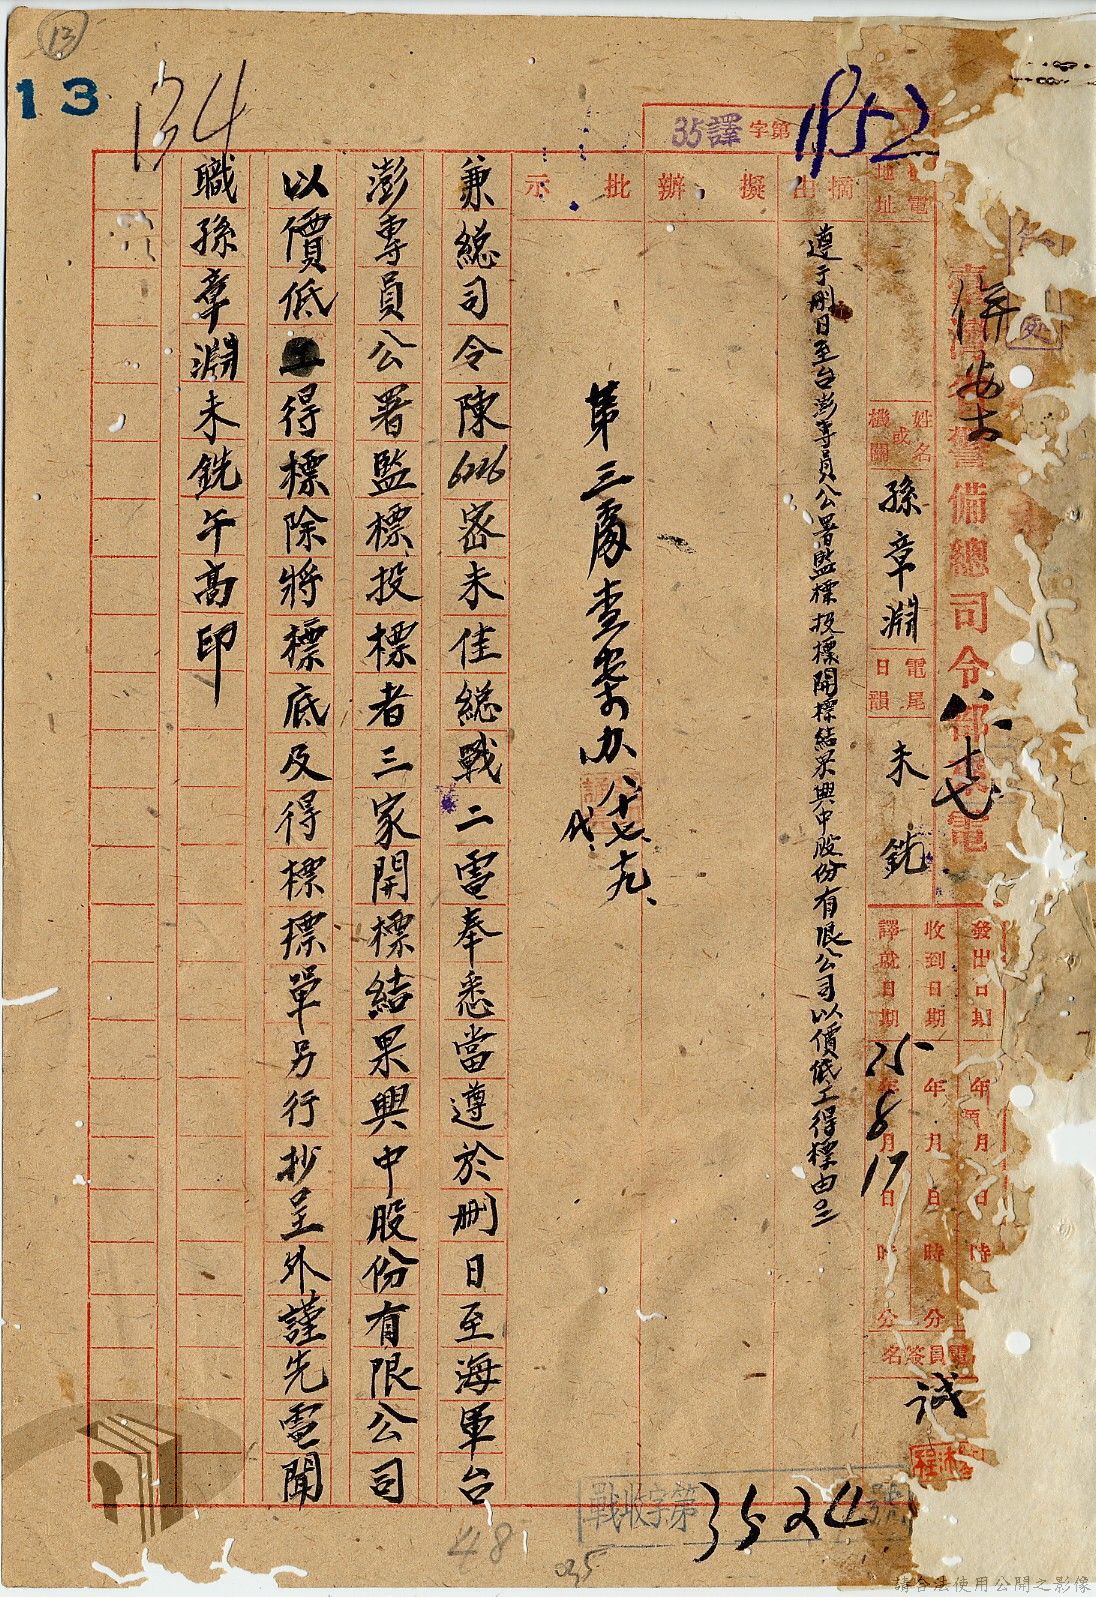 13
13
134
35譯字第1152
臺灣省警備總司令部來電
電地址
姓名或機關
孫章淵
電尾日韻
未銑
發出日期 年 月 日 時
收到日期 年 月 日 時 分
譯就日期 35年8月17日 時 分
電員簽名
誠
八、十七
摘由
擬辦
批示
遵于刪日至台澎專員公署監標投標開標結果興中股份有限公司以價低工得標由
第三處查案办
八十七
兼總司令陳6226密未佳總戰二電奉悉當遵於刪日至海軍台
澎專員公署監標投標者三家開標結果興中股份有限公司
以價低得標除將標底及得標標單另行抄呈外謹先電聞
職孫章淵未銑午高印
戰收字第3524號
48
35
請合法使用公開之影像